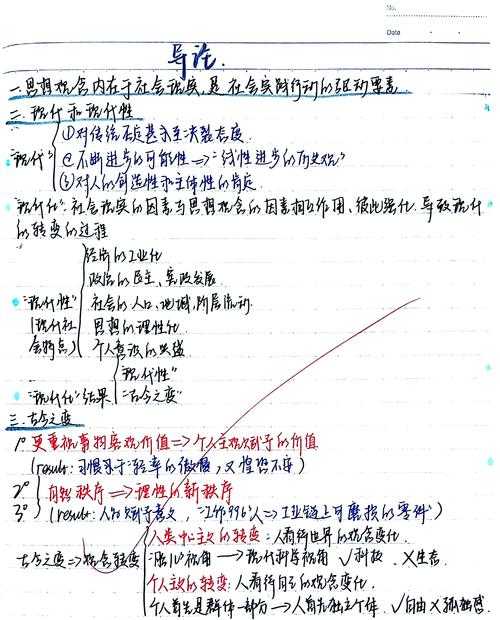 No.
Date
导论.
一.思想观念内在于社会现实,是社会实践行动的驱动要素
二.现代和现代性
①对传统否定甚至决裂态度.
"现代" ②不断进步的可能性=>"线性进步的历史观"
③对人的创造性和主体性的肯定
"现代化":社会现实的因素与思想观念的因素相互作用、彼此强化.导致现代
的转变的过程
经济的工业化
政治的民主、宪政发展
"现代性" 社会的人口、地域,阶层流动.
(现代社 思想的理性化
会特点) 个人意识的兴盛
"现代性"
"现代化"结果 "古今之变"
三.古今之变
1° 更重视事物客观价值=>个人主观赋予的价值
(result:习惯于轻率的傲慢,又惶恐不安)
2° 自然秩序=>理性的新秩序
3° (result:人的赋予意义,"工作996人=>工业链上可磨损的零件")
人类中心主义的转变:人看待世界的观念变化.
古今之变=>观念转变 视角→现代科学视角 √科技.×生态.
个人主义的转变:人看待自己的观念变化.
个人首先是群体一部分→人首先独立个体.√自由×孤独感.